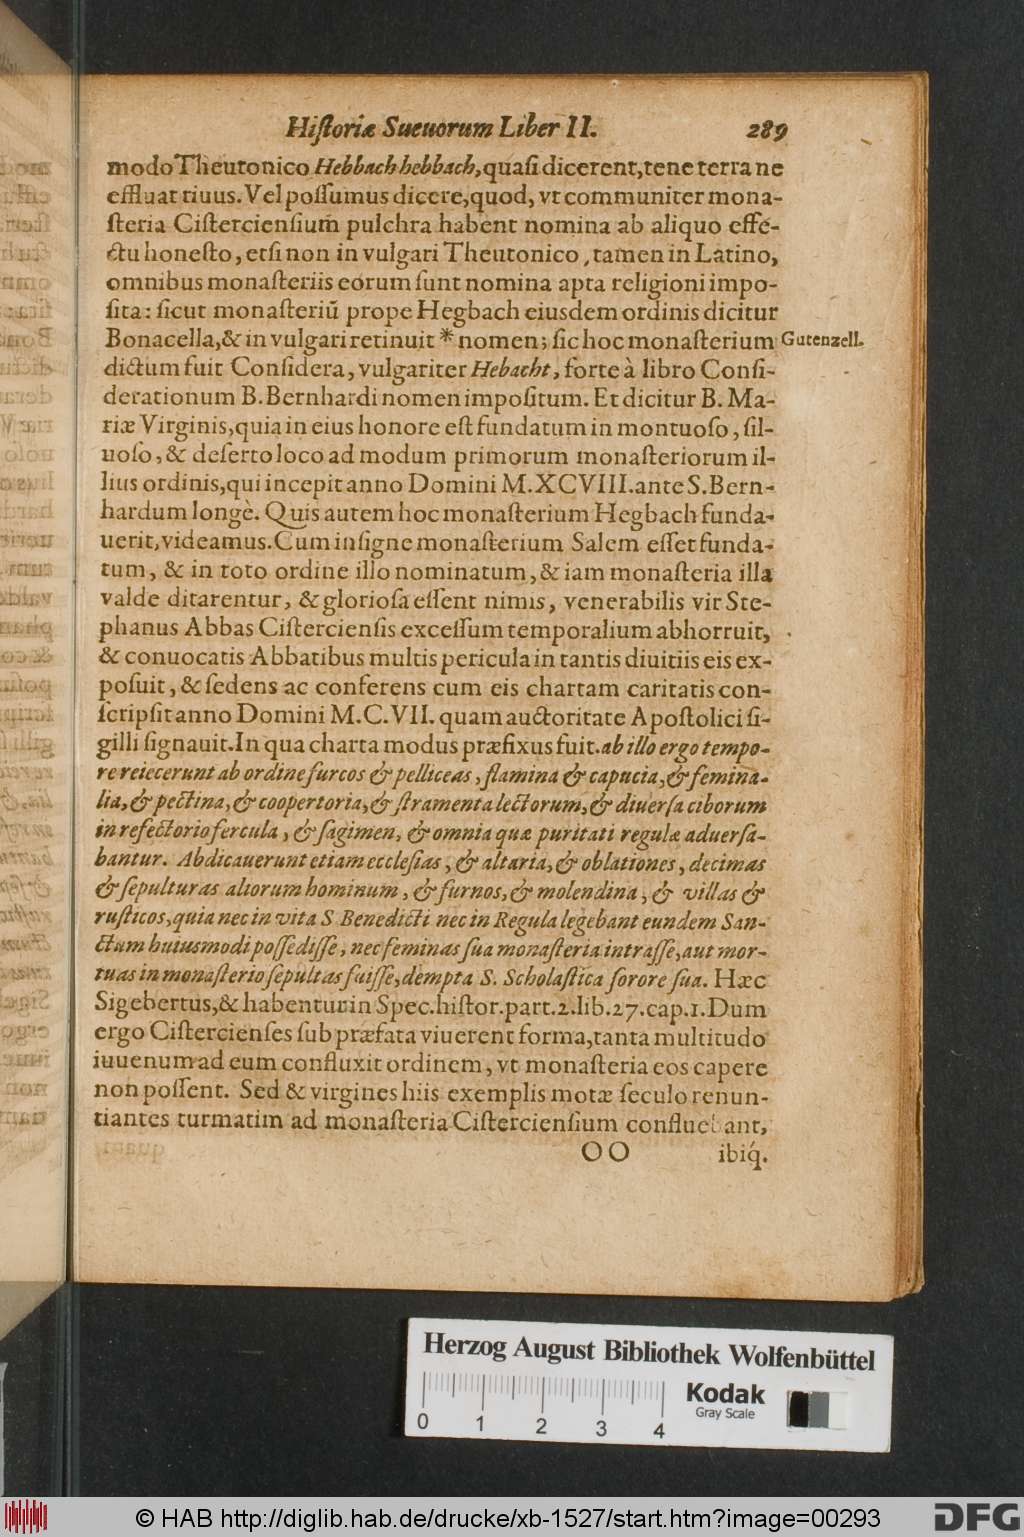 Hiſtoriæ Sueuorum Liber II. 289
modo Theutonico Hebbach hebbach, quaſi dicerent, tene terra ne
effluat riuus. Vel poſſumus dicere, quod, vt communiter mona-
ſteria Ciſtercienſium pulchra habent nomina ab aliquo effe-
ctu honeſto, etſi non in vulgari Theutonico, tamen in Latino,
omnibus monaſteriis eorum ſunt nomina apta religioni impo-
ſita: ſicut monaſteriũ prope Hegbach eiusdem ordinis dicitur
Bonacella, & in vulgari retinuit * nomen; ſic hoc monaſterium Gutenzell.
dictum fuit Conſidera, vulgariter Hebacht, forte à libro Conſi-
derationum B. Bernhardi nomen impoſitum. Et dicitur B. Ma-
riæ Virginis, quia in eius honore eſt fundatum in montuoſo, ſil-
uoſo, & deſerto loco ad modum primorum monaſteriorum il-
lius ordinis, qui incepit anno Domini M.XCVIII. ante S. Bern-
hardum longè. Quis autem hoc monaſterium Hegbach funda-
uerit, videamus. Cum inſigne monaſterium Salem eſſet funda-
tum, & in toto ordine illo nominatum, & iam monaſteria illa
valde ditarentur, & glorioſa eſſent nimis, venerabilis vir Ste-
phanus Abbas Ciſtercienſis exceſſum temporalium abhorruit,
& conuocatis Abbatibus multis pericula in tantis diuitiis eis ex-
poſuit, & ſedens ac conferens cum eis chartam caritatis con-
ſcripſit anno Domini M.C.VII. quam auctoritate Apoſtolici ſi-
gilli ſignauit. In qua charta modus præfixus fuit. ab illo ergo tempo-
re reiecerunt ab ordine furcos & pelliceas, ſtamina & caputia, & femina-
lia, & pectina, & coopertoria, & ſtramenta lectorum, & diuerſa ciborum
in refectorio fercula, & ſagimen, & omnia quæ puritati regulæ aduerſa-
bantur. Abdicauerunt etiam eccleſias, & altaria, & oblationes, decimas
& ſepulturas aliorum hominum, & furnos, & molendina, & villas &
ruſticos, quia nec in vita S. Benedicti nec in Regula legebant eundem San-
ctum huiusmodi poſſediſſe, nec feminas ſua monaſteria intraſſe, aut mor-
tuas in monaſterio ſepultas fuiſſe, dempta S. Scholaſtica ſorore ſua. Hæc
Sigebertus, & habentur in Spec. hiſtor. part. 2. lib. 27. cap. 1. Dum
ergo Ciſtercienſes ſub præfata viuerent forma, tanta multitudo
iuuenum ad eum confluxit ordinem, vt monaſteria eos capere
non poſſent. Sed & virgines hiis exemplis motæ ſeculo renun-
tiantes turmatim ad monaſteria Ciſtercienſium confluebant,
OO ibiq́.
Herzog August Bibliothek Wolfenbüttel
Kodak
Gray Scale
0 1 2 3 4
© HAB http://diglib.hab.de/drucke/xb-1527/start.htm?image=00293
DFG